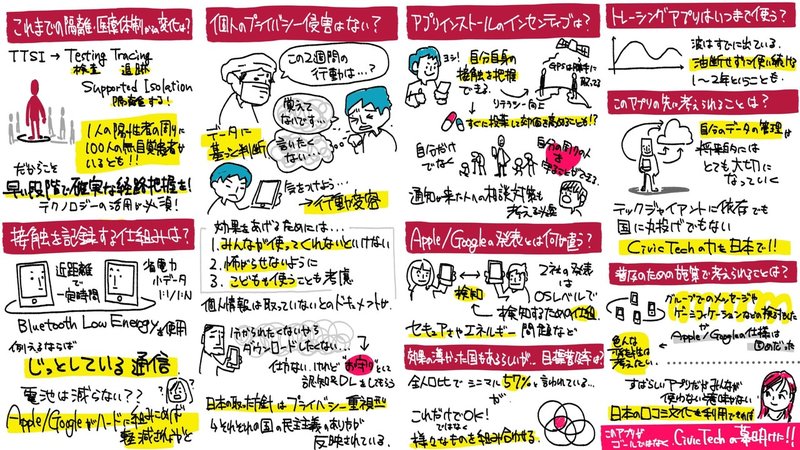 これまでの隔離・医療体制からの変化は?
TTSI → Testing Tracing
検査 追跡
Supported Isolation
隔離をする!
1人の陽性者の周りに
100人の無自覚患者が
いるとも!!
だからこそ
早い段階で確実な経路把握を!
テクノロジーの活用が必須!
接触を記録する仕組みは?
近距離で
一定時間
省電力
小データ
Bluetooth Low Energyを使用
例えるならば
じっとしている通信
電池は減らない??
Apple/Googleがハードに組みこめば
軽減されるかと
個人のプライバシー侵害はない?
この2週間の
行動は…?
覚えて
ないです…
言いたく
ない…
データに
基づく判断
気をつけよう…
→行動変容
効果をあげるためには…
1.みんなが使ってくれないといけない
2.怖がらせないように
3.こどもも使うことも考慮
個人情報は取っていないとのドキュメントが
行かれたくないやろ
ダウンロードしたくない…
仕方ない。けれど"お守り"といって
認知&DLをしてもらう
日本の取った方針はプライバシー重視型
4それぞれの国の民主主義のありかが
反映されている。
アプリインストールのインセンティブは?
ヨシ!
自分自身の
接触を把握
できる。
GPSは勝手に
取ってる
リテラシー向上
すぐに投薬して効果を高めることも!?
自分だけ
でなく
自分の周りの人
守ることができる。
通知が来た人への相談対策も
考える必要
Apple/Googleの発表とは何が違う?
検知
2社の発表
は
OSレベルで
検知するための仕組
セキュアさやエネルギー問題など
効果の薄かった国もあるらしいが… 目標普及率は?
全人口比で ミニマム57%と言われている…
が
これだけでOK!
ではなく
様々なものを組み合わせる
トレーシングアプリはいつまで使う?
波はすでに出ている。
油断せずに使い続け
1〜2年ということも…
このアプリの先に考えられることは?
自分のデータの管理が
将来的には
とても大切に
なっていく
テックジャイアントに依存でも
国に丸投げでもない
Civic Techの力を日本で!!
普及のための施策で考えられることは?
グループでのメッセージや
ゲーミフィケーションなどの検討もした
が
Apple/Googleの仕様は
固めだった
色んな
可能性は
考えたい。
すばらしいアプリだけどみんなが
使わないと意味がない
日本の口コミ文化も利用できれば
このアプリが
ゴールではなく
Civic Techの幕明けだ!!